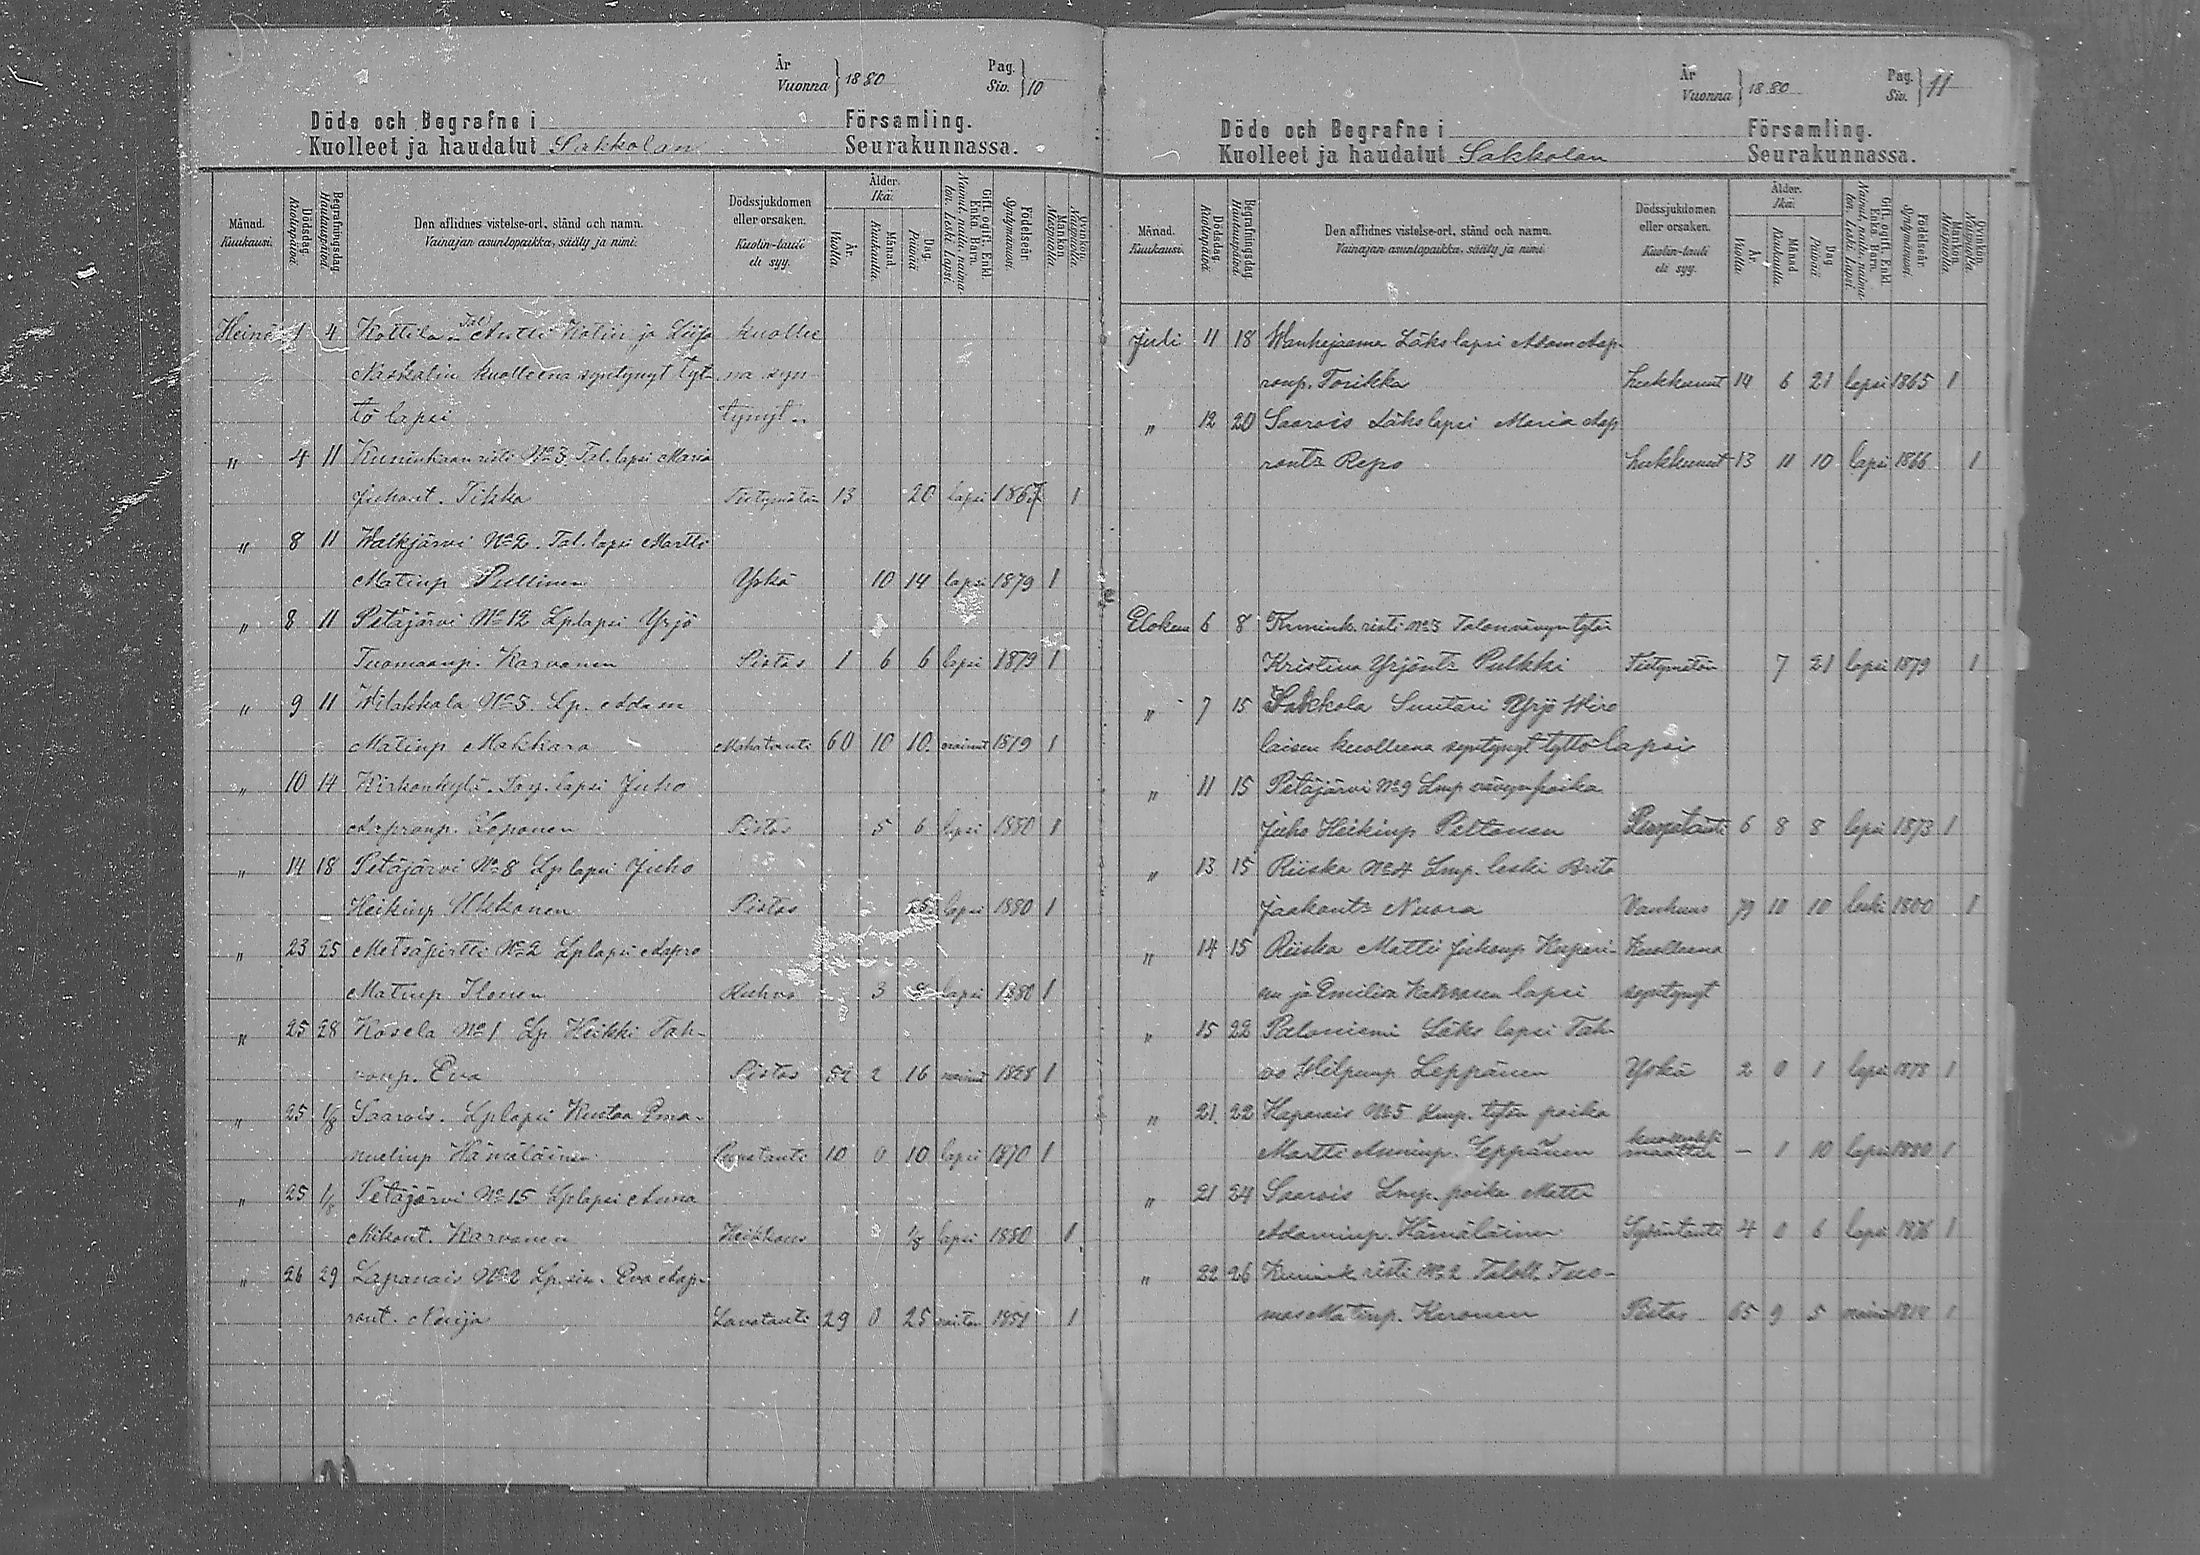 År
Vuonna } 1880
Pag.
Siv. } 10
Döde och Begrafne i Församling.
Kuolleet ja haudatut Sakkolan Seurakunnassa.
Månad. Kuukausi.
Dödsdag. Kuolinpäivä.
Begrafningsdag. Hautauspäivä.
Den aflidnes vistelse-ort, stånd och namn.
Vainajan asuntopaikka, sääty ja nimi.
Dödssjukdomen eller orsaken.
Kuolin-tauti eli syy.
Ålder. Ikä.
År. Vuotta.
Månad. Kuukautta.
Dag. Päivää.
Gift, ogift, Enkl. Enka, Barn.
Nainut, naitu, naimaton, Leski, Lapsi.
Födelseår. Syntymävuosi.
Mankön. Miespuolia.
Qvinkön. Waimopuolia.
Heinä 1 4 Kottila Tal Antti Kotiin ja Liisa kuollee
Naskalin kuolleena syntynyt tyt- na syn-
tö lapsi tynyt
" 4 11 Kuninkaanristi No 3. Tal. lapsi Maria
Juhont. Tikka Tietymätön 13 20 lapsi 1867 1
" 8 11 Walkjärvi No 2. Tal. lapsi Martti
Matinp Pullinen Yskä 10 14 lapsi 1879 1
" 8 11 Petäjärvi No 12 Lplapsi Yrjö
Tuomaanp. Karvonen Pistos 1 6 6 lapsi 1879 1
" 9 11 Wilakkala No 5. Lp. Adam
Matinp Makkara Mahatauti 60 10 10 nainut 1819 1
" 10 14 Kirkonkylä. lapsi Juho
Aapronp. Leponen Pistos 5 6 lapsi 1880 1
" 14 18 Petäjärvi No 8 Lp lapsi Juho
Heikinp Ukkonen Pistos 25 lapsi 1880 1
" 23 25 Metsäpirtti No 2 Lplapsi Aapro
Matinp Ilonen 3 lapsi 1880 1
" 25 28 Kosela No 1 Lp Heikki Tah-
vonp. Eva Pistos 52 2 16 nainut 1828 1
" 25 1/8 Saarois. Lplapsi Kustaa Ema-
nuelinp Hämäläinen Punatauti 10 0 10 lapsi 1870 1
" 25 1/8 Petäjärvi No 15 Lplapsi Anna
Mikont. Karvonen Heikkous 1/8 lapsi 1880 1
" 26 29 Lapanais No 2 Lp. Eva Aap-
ront. Lavatauti 29 0 25 1851 1
År
Vuonna } 1880
Pag.
Siv. } 11
Döde och Begrafne i Församling.
Kuolleet ja haudatut Sakkolan Seurakunnassa.
Månad. Kuukausi.
Dödsdag. Kuolinpäivä.
Begrafningsdag. Hautauspäivä.
Den aflidnes vistelse-ort, stånd och namn.
Vainajan asuntopaikka, sääty ja nimi.
Dödssjukdomen eller orsaken.
Kuolin-tauti eli syy.
Ålder. Ikä.
År. Vuotta.
Månad. Kuukautta.
Dag. Päivää.
Gift, ogift, Enkl. Enka, Barn.
Nainut, naitu, naimaton, Leski, Lapsi.
Födelseår. Syntymävuosi.
Mankön. Miespuolia.
Qvinkön. Waimopuolia.
Juli 11 18 Wanhajaama Läks lapsi Adam Aap-
ronp. Torikka hukkunut 14 6 21 lapsi 1865 1
" 12 20 Saarois Läks lapsi Maria Aap
rontr Repo hukkunut 13 11 10 lapsi 1866 1
Elokuu 6 8 Kunink. risti No 3 Talonvävyn tytär
Kristina Yrjöntr Pulkki Tietymätön 7 21 lapsi 1879 1
" 7 15 Sakkola Suutari Yrjö Hiro
laisen kuolleena syntynyt tyttö lapsi
" 11 15 Petäjärvi No 9 Lmp vävynpoika
Juho Heikinp Peltonen Punatauti 6 8 8 lapsi 1873 1
" 13 15 Riiska No 4 Lmp. leski Brita
Jaakontr Nuora Vanhuus 79 10 10 leski 1800 1
" 14 15 Riiska Matti Juhonp Kaspari- Kuolleena
nn ja Emilia lapsi syntynyt
" 15 22 Paloniemi Läks lapsi Tah-
vo Hilpunp Leppänen Yskä 2 0 1 lapsi 1878 1
" 21. 22 Haparais No 5 Lmp. tytön poika
Martti Anninp. Leppänen – 1 10 lapsi 1880 1
" 21 24 Saarois Lmp. poika Matti
Adaminp. Hämäläinen Sydäntauti 4 0 6 lapsi 1876 1
" 22 26 Kunink risti No 2 Talol. Tuo-
mas Matinp. Karonen Pistos 65 9 5 nainut 1814 1